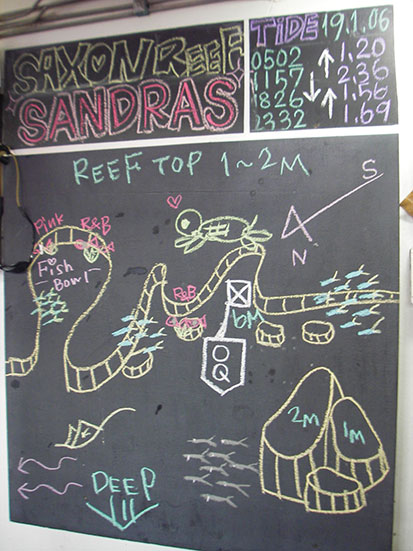 SAXON REEF
SANDRAS
TIDE 19.1.06
0502 1.20
1157 ↑ 2.36
1826 ↓ 1.56
2332 ↑ 1.69
REEF TOP 1~2M
S
N
Pink
R&B
Fish
Bowl
R&B
6M
OQ
2M
1M
DEEP